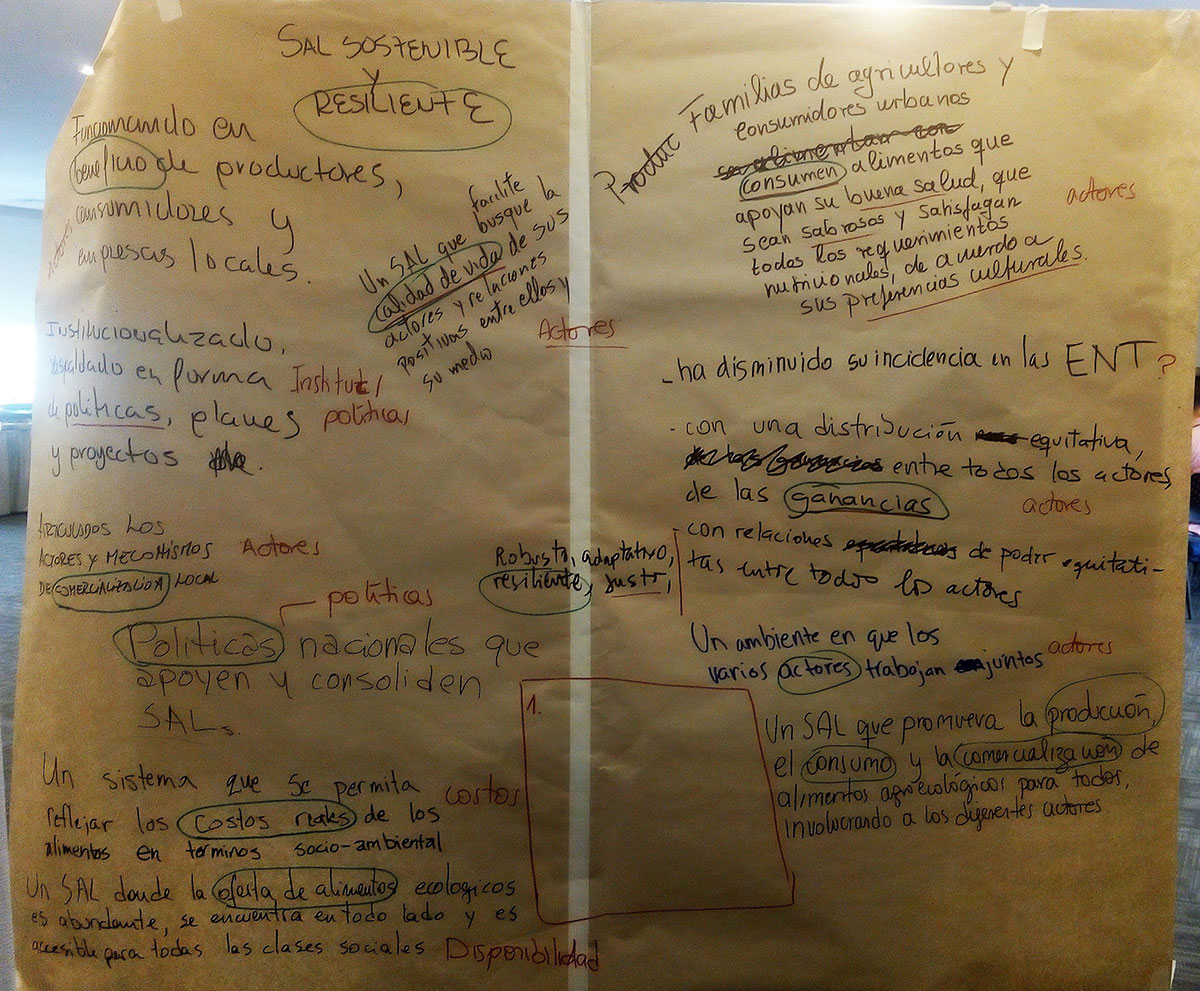 SAL SOSTENIBLE
Y
RESILIENTE
Funcionando en
beneficio de productores,
consumidores y
empresas locales.
actores
Un SAL que facilite
busque la
calidad de vida de sus
actores y relaciones
positivas entre ellos y
su medio
Actores
Institucionalizado,
respaldado en forma
de políticas, planes
y proyectos
Institut/
políticas
ARTICULADOS LOS
ACTORES Y MECANISMOS
DE COMERCIALIZACIÓN LOCAL
Actores
políticas
Políticas nacionales que
apoyen y consoliden
SAL.
Un sistema que se permita
reflejar los costos reales de los
alimentos en terminos socio-ambiental
costos
Un SAL donde la oferta de alimentos ecologicos
es abundante, se encuentra en todo lado y es
accesible para todas las clases sociales
Disponibilidad
Produc
Familias de agricultores y
consumidores urbanos
consumen alimentos que
apoyan su buena salud, que
sean sabrosos y satisfagan
todos los requerimientos
nutricionales, de acuerdo a
sus preferencias culturales.
actores
- ha disminuido su incidencia en las ENT?
- con una distribución equitativa,
entre todos los actores,
de las ganancias
actores
Robusto, adaptativo,
resiliente, justo,
con relaciones de poder equitati-
tas entre todos los actores
Un ambiente en que los
varios actores trabajan juntos
actores
1.
Un SAL que promueva la producción,
el consumo y la comercialización de
alimentos agroecológicos para todos,
involocrando a los diferentes actores.